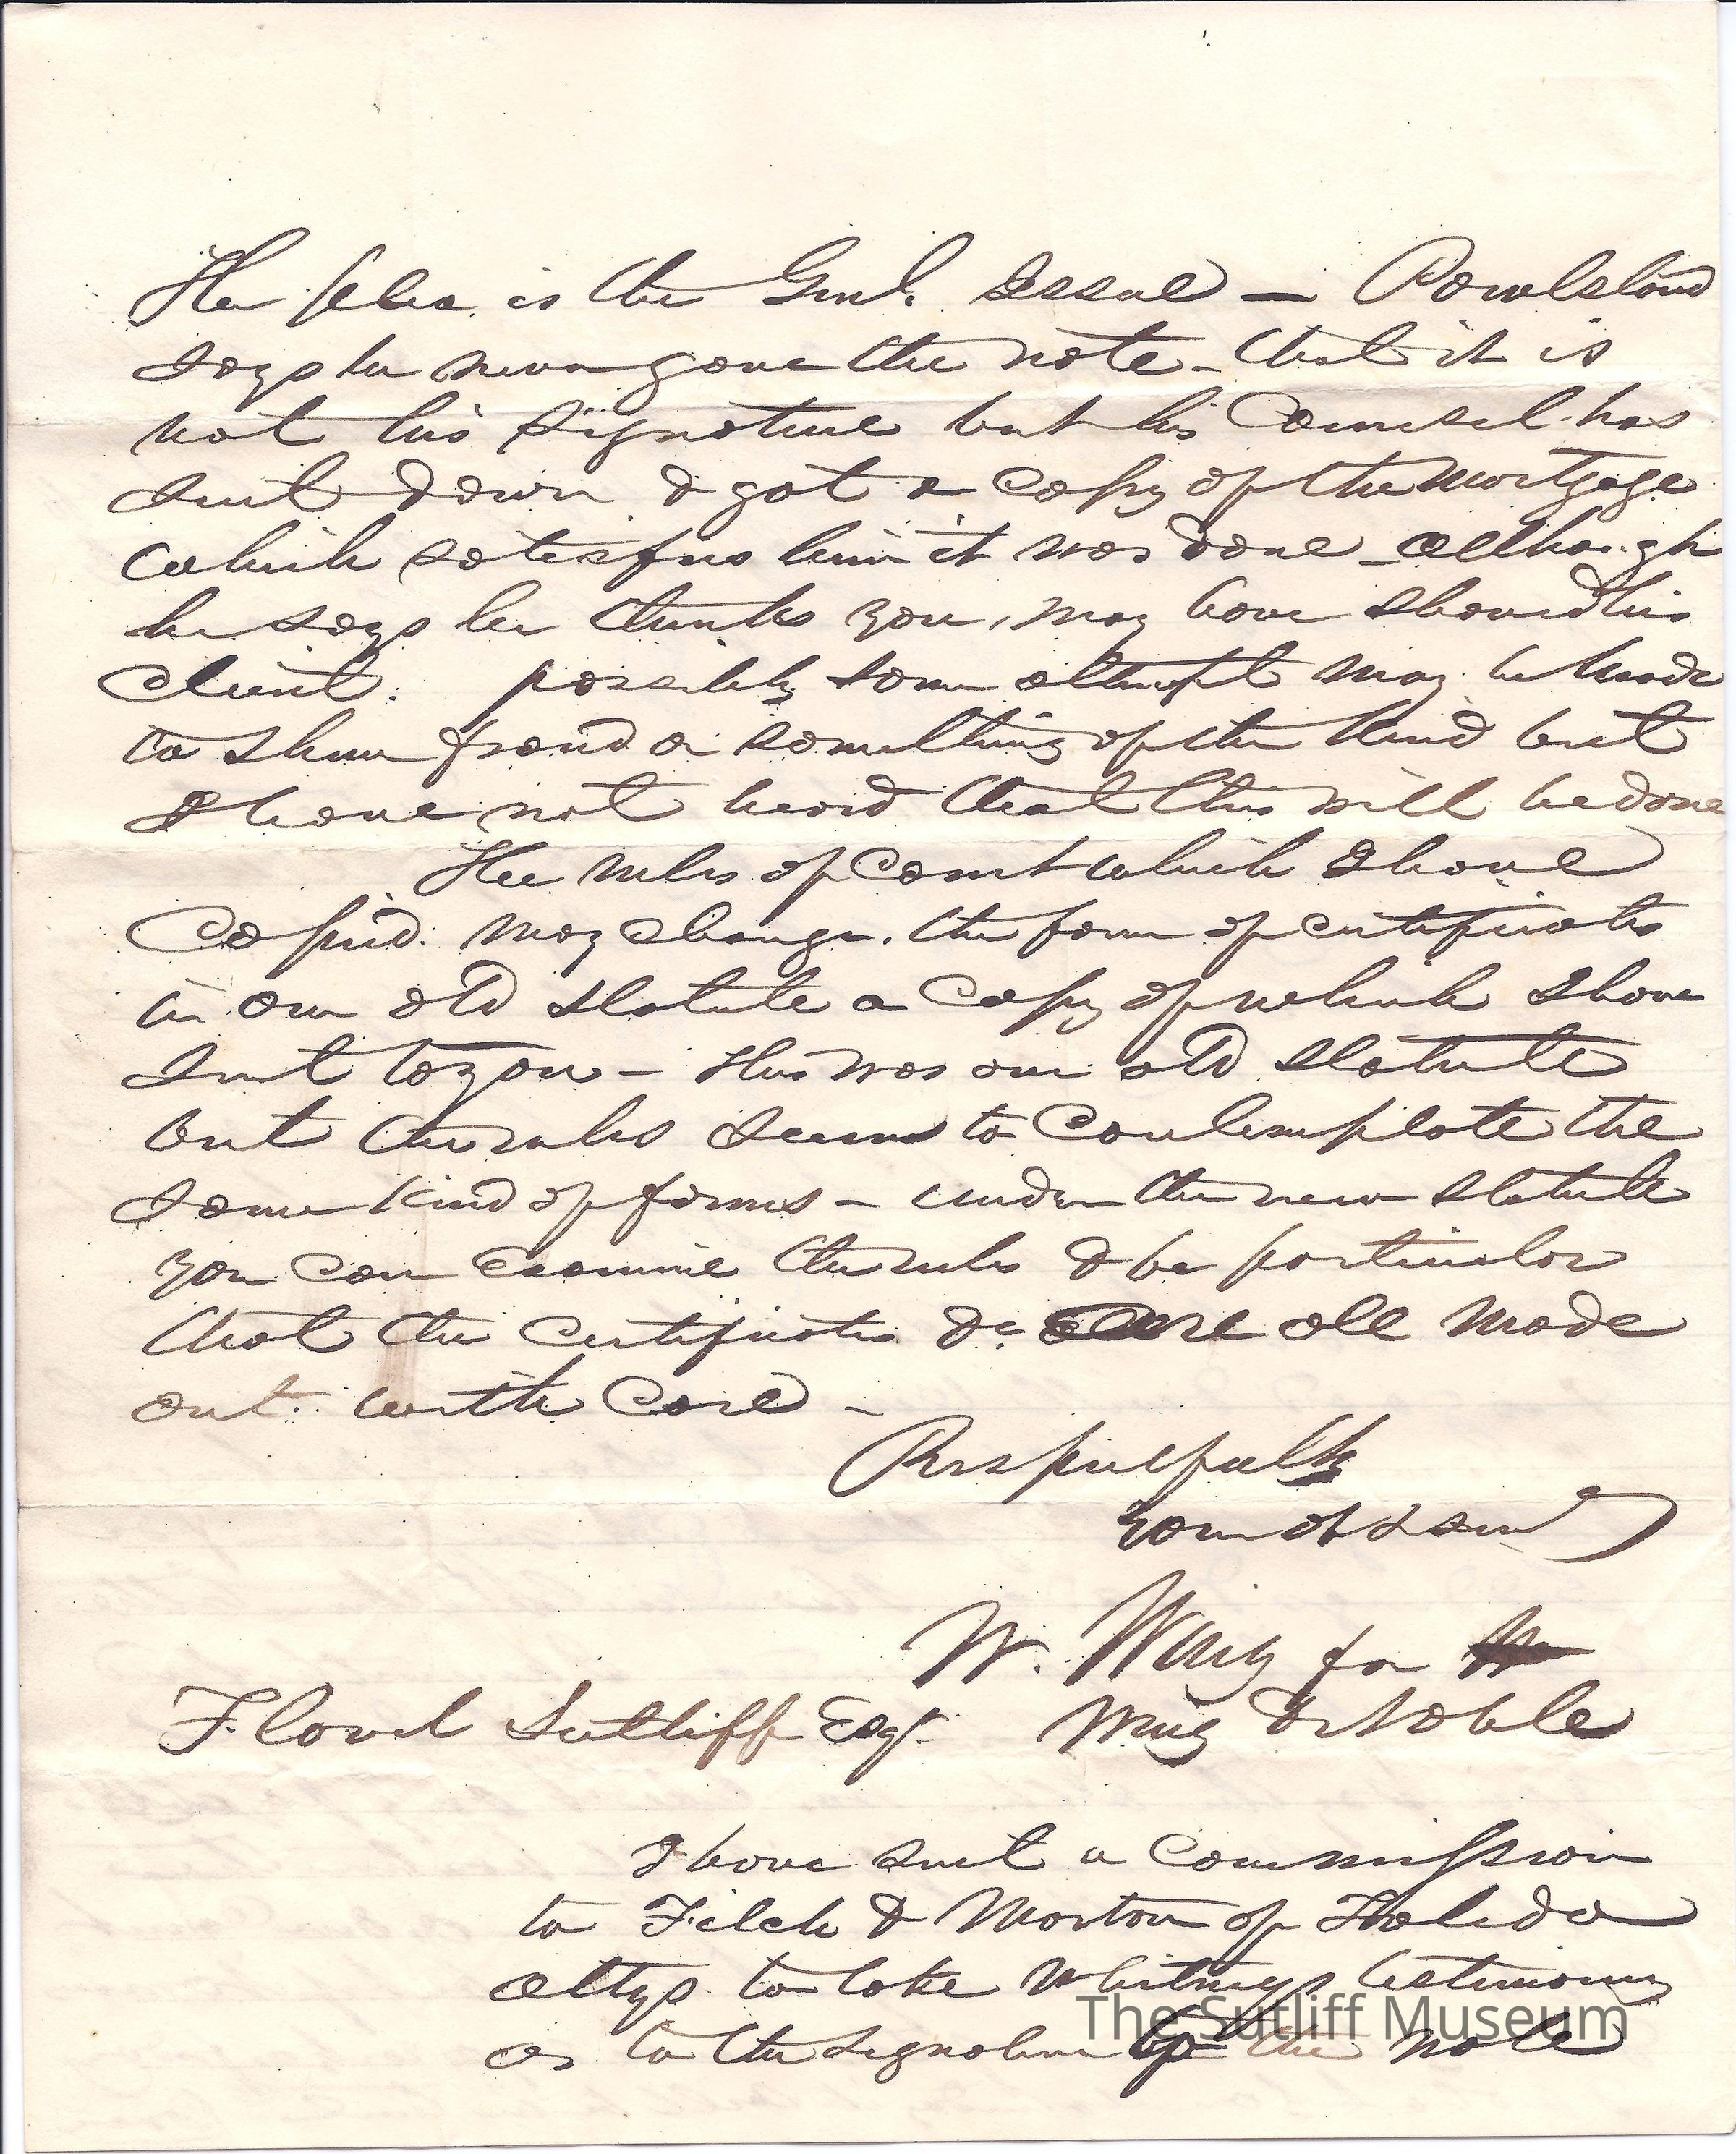 The plea is the Genl. Issue — Powlsland
says he never gave the note - that it is
not his signature but his Counsel has
sent down & got a copy of the mortgage
which satisfies him it was done - although
he says he thinks you, may have shoved his
Client. possibly some attempt may be made
to show fraud or something of the kind but
I have not heard that this will be done
The rules of Court which I have
Copied. may change. the form of certificates
in our old statute a Copy of which I have
sent to you - this was our old statute
but the rules seems to Contemplate the
same kind of forms - under the new statute
you can examine the rules & be particular
that the Certificates &c. are all made
out. with Care -
Respectfully
Your obt serv
W. Wing for
Wing & Noble
Flovel Sutliff Esqr.
I have sent a Commission
to Fitch & Morton of Toledo
attys. to take Whitneys testimony
as to the signature of the note
The Sutliff Museum